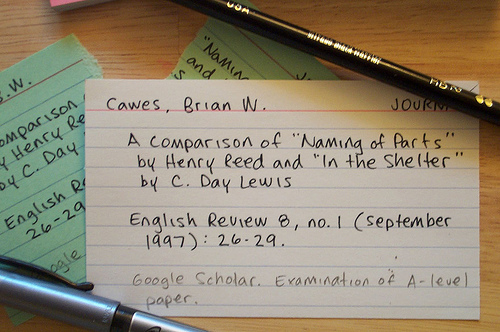 Cawes, Brian W.
A comparison of "Naming of Parts"
by Henry Reed and "In the Shelter"
by C. Day Lewis
English Review 8, no. 1 (September
1997): 26-29.
Google Scholar. Examination of A-level
paper.
USA
"Naming
and
.W.
omparison
Henry Re
by C. Day
English R
26-29
ogle